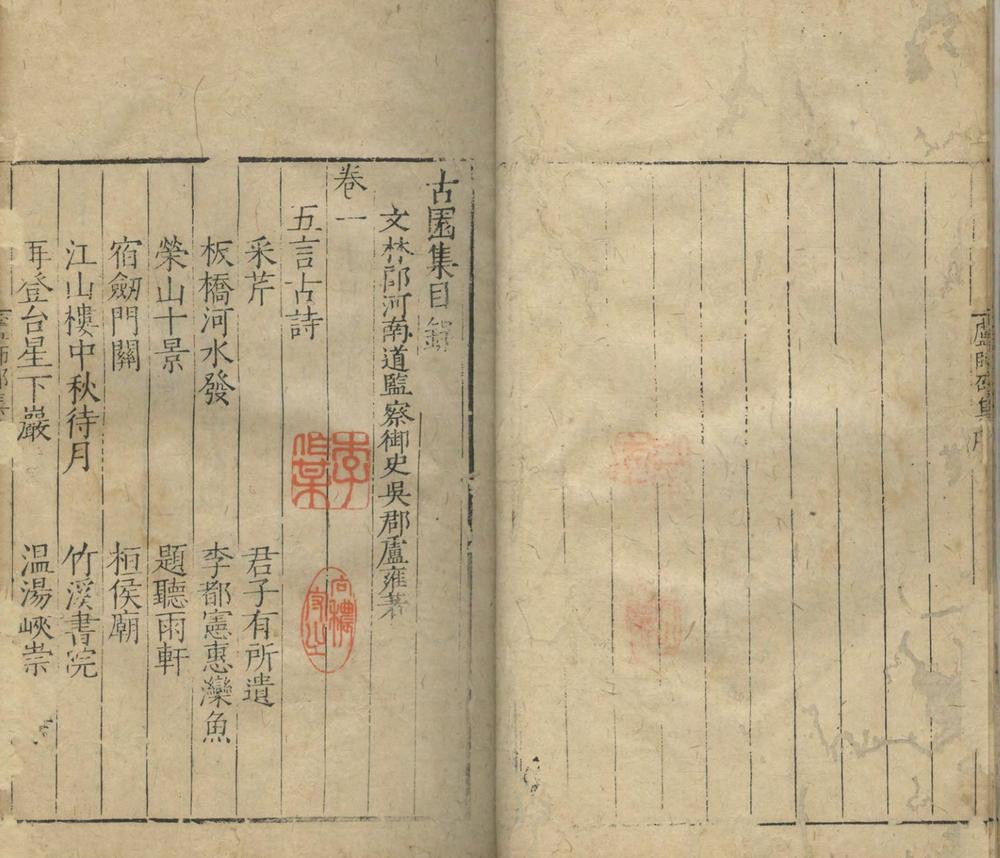 盧師邵集序
古園集目錄
文林郎河南道監察御史吳郡盧雍著
卷一
五言古詩
采芹 君子有所遺
板橋河水發 李都憲惠灤魚
榮山十景 題聽雨軒
宿劔門關 桓侯廟
江山樓中秋待月 竹溪書院
再登台星下巖 温湯峽崇